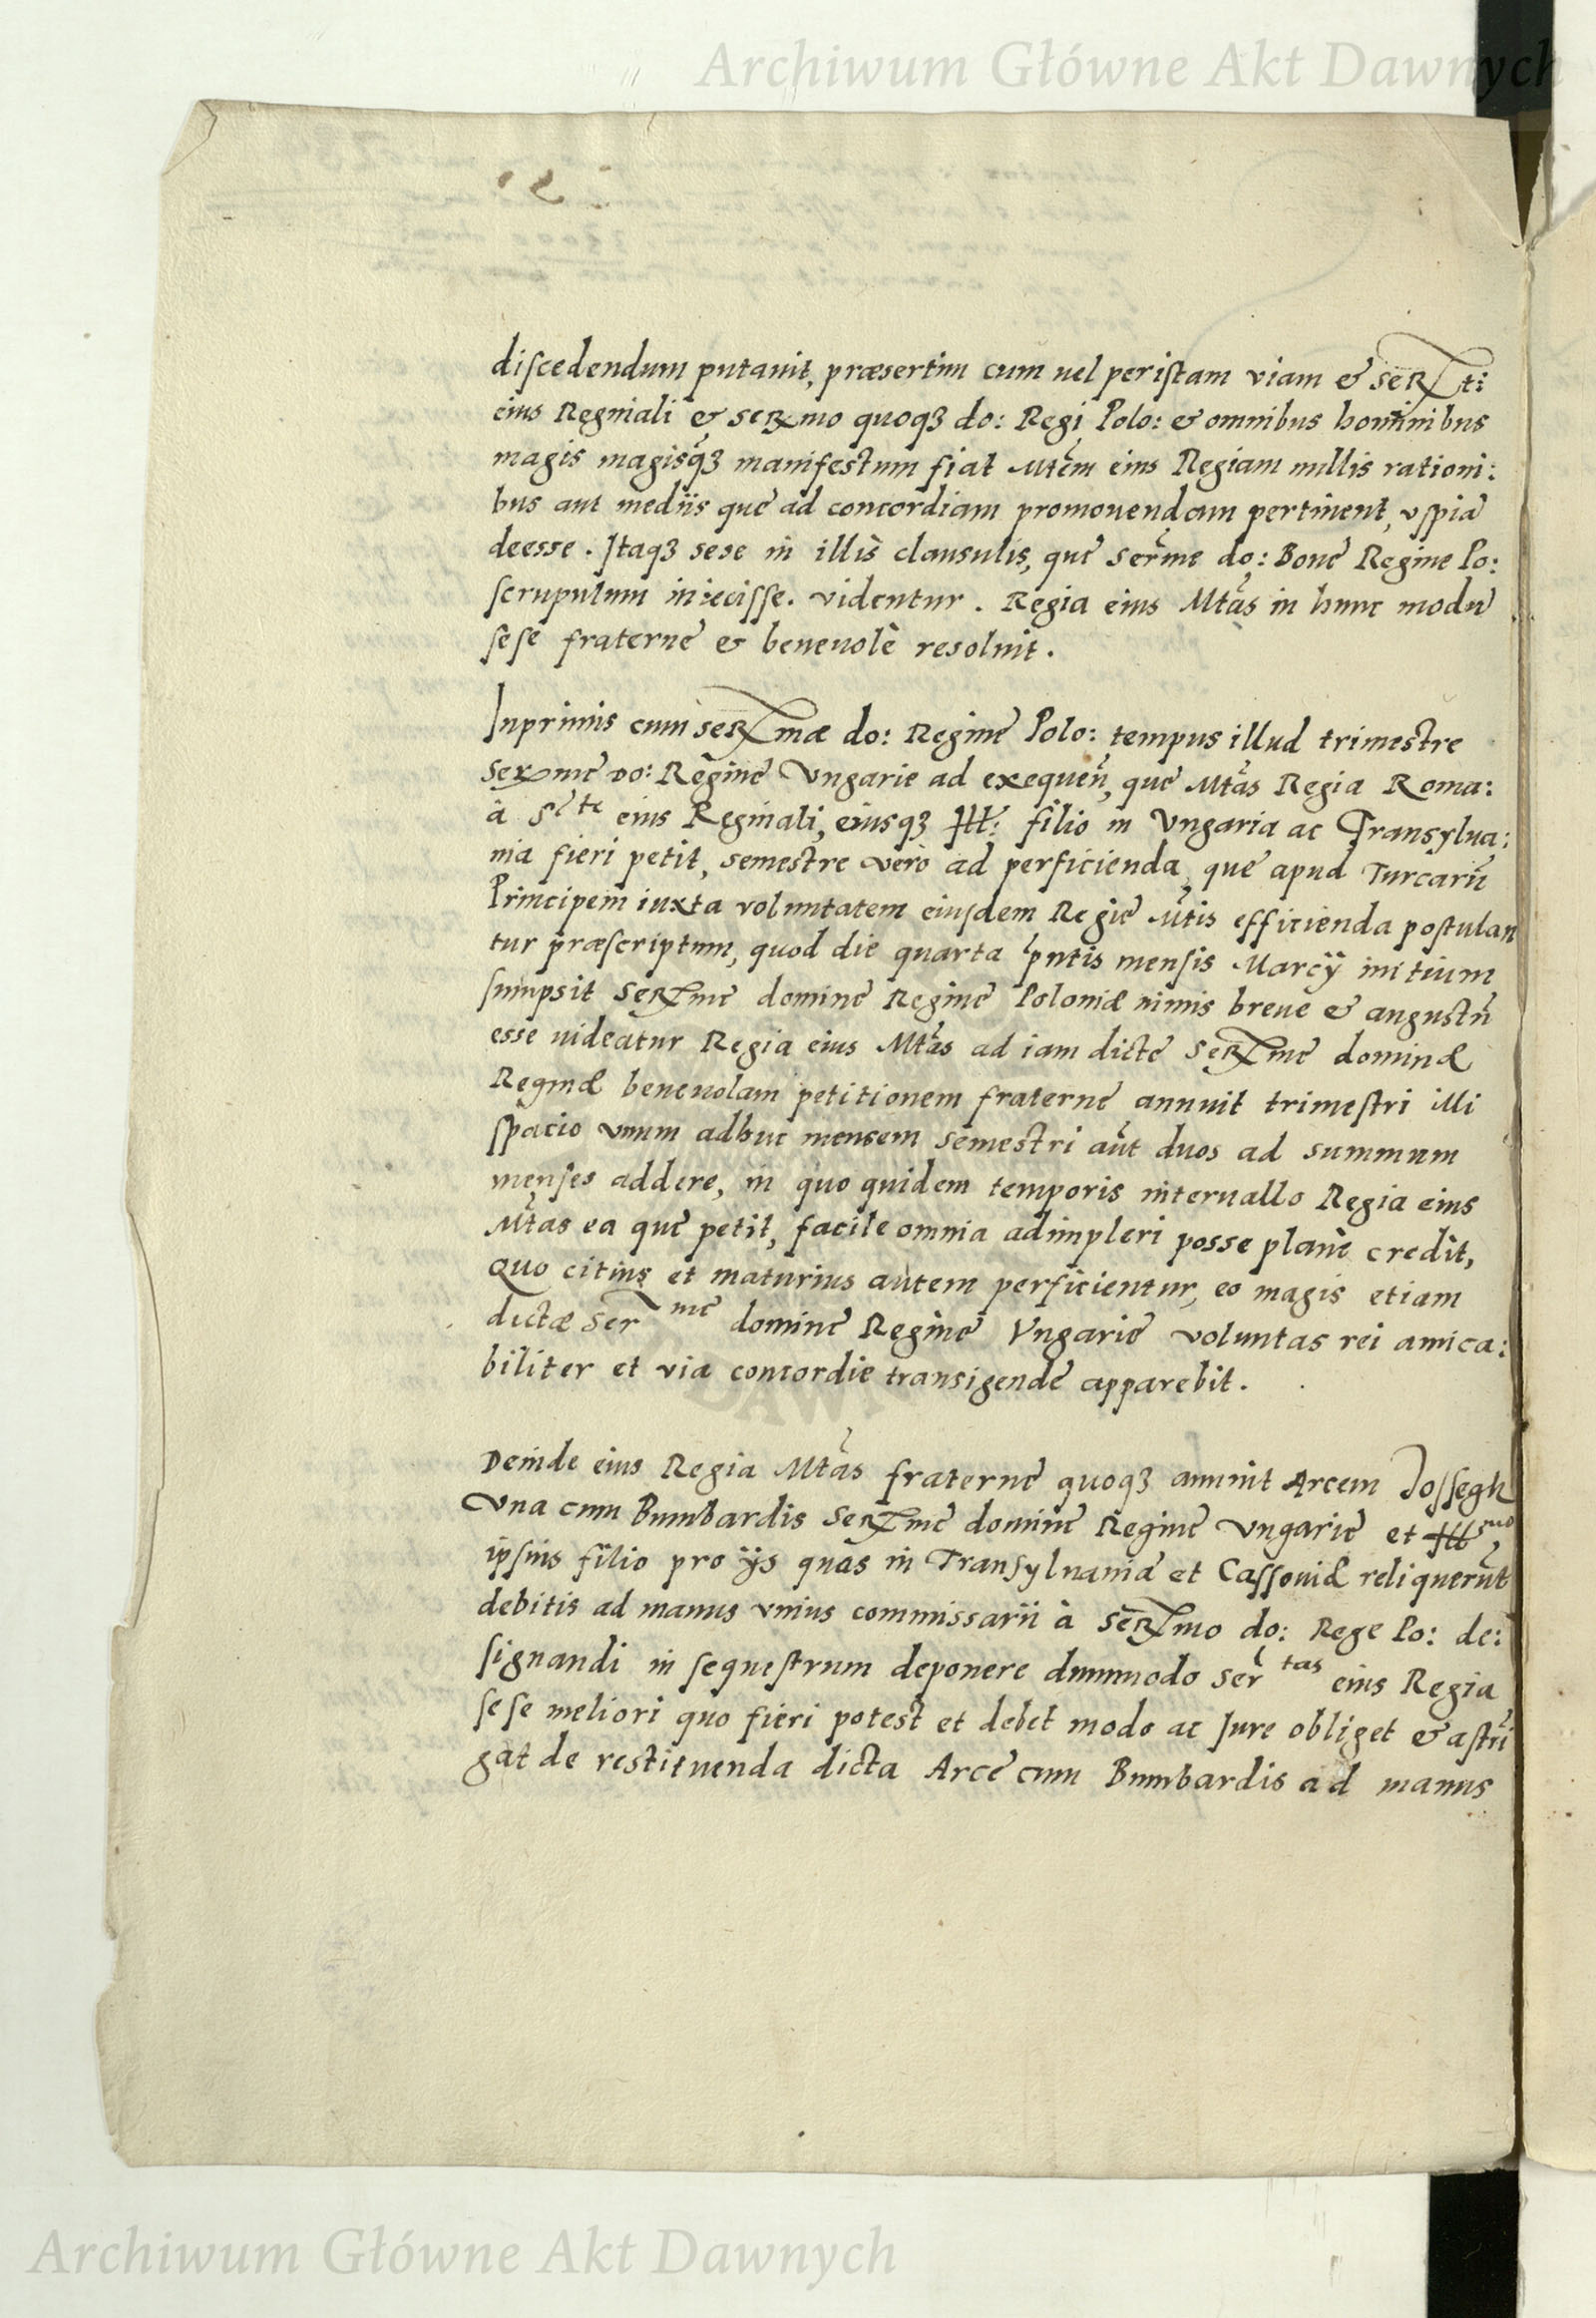 Archiwum Główne Akt Dawnych
discedendum putauit, præsertim cum uel peristam viam & Serti:
eius Reginali & Sermo quoqз do: Regi Polo: & omnibus hominibus
magis magisqз manifestum fiat Mtem eius Regiam nullis rationi:
bus aut mediis que ad concordiam promouendam pertinent, vspiā
deesse. Itaqз sese in illis clausulis, que Serme do: Bone Regine Po:
scrupulum iniecisse. videntur. Regia eius Mtas in hunc modū
sese fraterne & beneuolè resoluit.
Inprimis cum Sermæ do: Regine Polo: tempus illud trimestre
Serme do: Regine Vngarie ad exequen, que Mtas Regia Roma:
à Ste eius Reginali, eiusqз Ill: filio in Vngaria ac Transylua:
nia fieri petit, semestre verò ad perficienda, que apud Turcarū
Principem iuxta voluntatem eiusdem Regie Mtis efficienda postulan
tur præscriptum, quod die quarta pntis mensis Marcÿ initium
sumpsit Serme domine Regine Poloniæ nimis breue & angustū
esse uideatur Regia eius Mtas ad iam dicte Serme dominæ
Reginæ beneuolam petitionem fraterne annuit trimestri illi
spacio vnum adhuc mensem semestri aut duos ad summum
menses addere, in quo quidem temporis interuallo Regia eius
Mtas ea que petit, facile omnia adimpleri posse planè credit,
Quo citius et maturius autem perficientur, eo magis etiam
dictæ Serme domine Regine Vngarie voluntas rei amica:
biliter et via concordie transigende apparebit.
Deinde eius Regia Mtas fraterne quoqз annuit Arcem Jossegh
Vna cum Bumbardis Serme domine Regine Vngarie et Illmo
ipsius filio pro ÿs quas in Transyluania et Cassouiæ reliquerūt
debitis ad manus vnius commissarii à Sermo do: Rege Po: de:
signandi in sequestrum deponere dummodo Sertas eius Regia
sese meliori quo fieri potest et debet modo ac Jure obliget & astri
gat de restituenda dicta Arce cum Bumbardis ad manus
Archiwum Główne Akt Dawnych